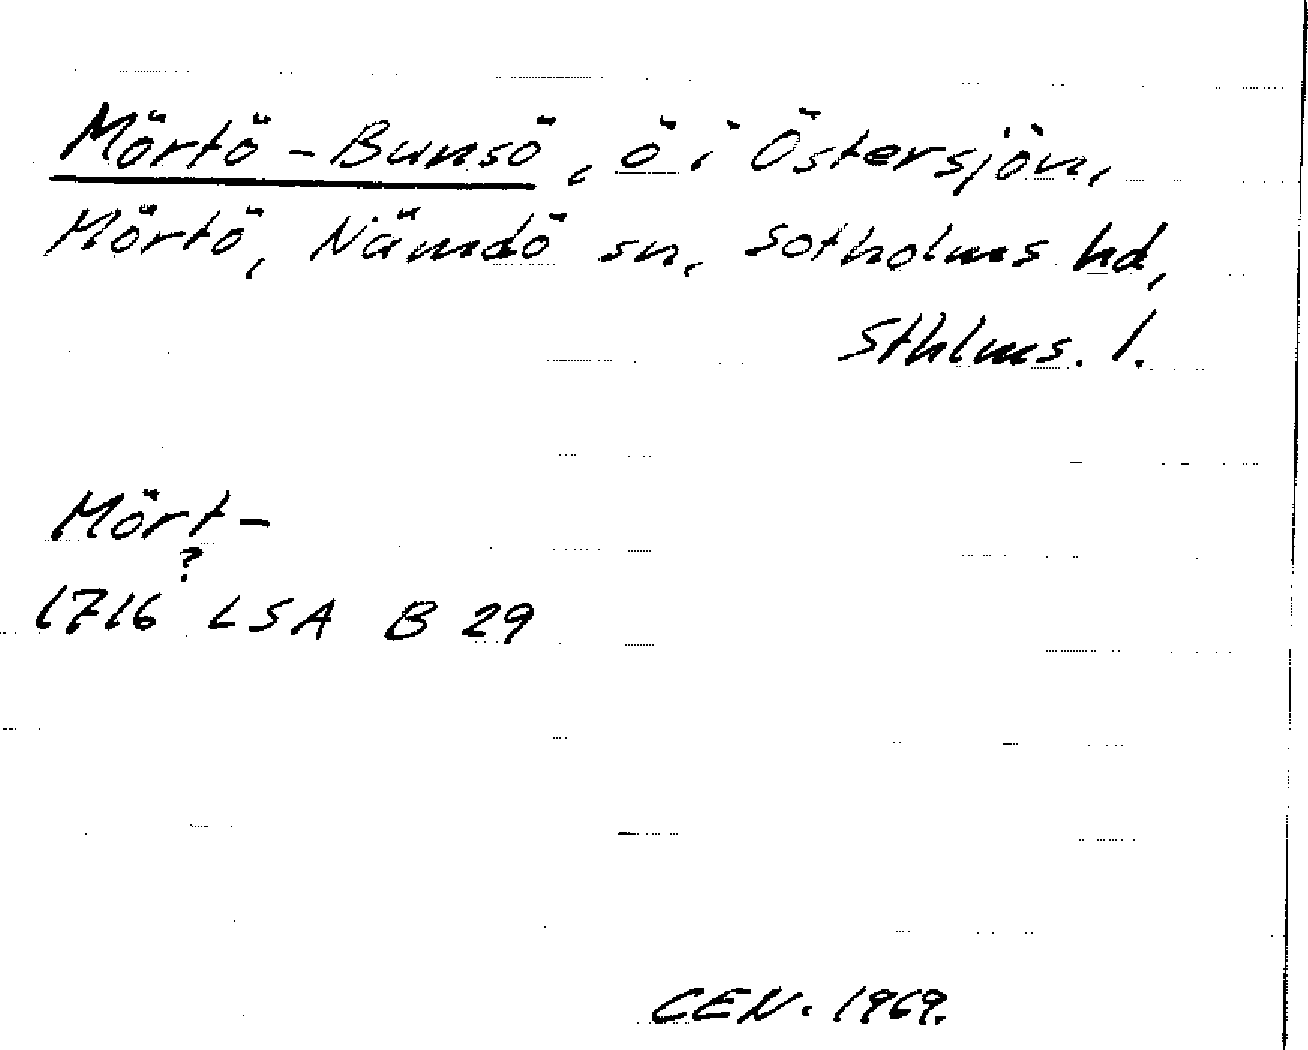 Mörtö-Bunsö, ö i Östersjön,
Mörtö, Nämdö sn, Sotholms hd,
Sthlms. l.
Mört-
?
1716 LSA B 29
CEN. 1969.